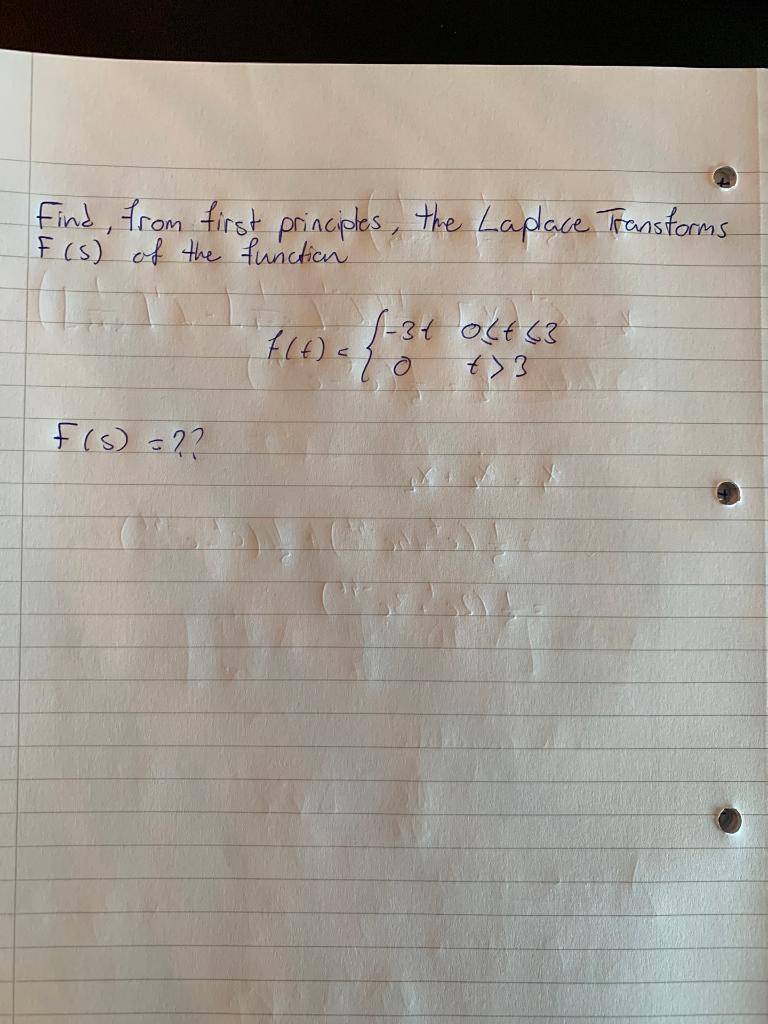 Find, from first principles, the Laplace Transforms
F(s) of the function
f(t) = { -3t 0≤t≤3
0 t>3
F(s) = ??